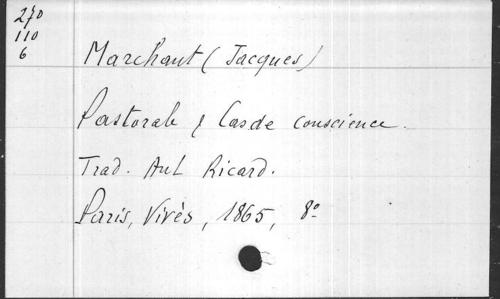 270
110
6
Marchant (Jacques)
Pastorale & Cas de conscience.
Trad. Ant Ricard.
Paris, Vivès, 1865, 8°